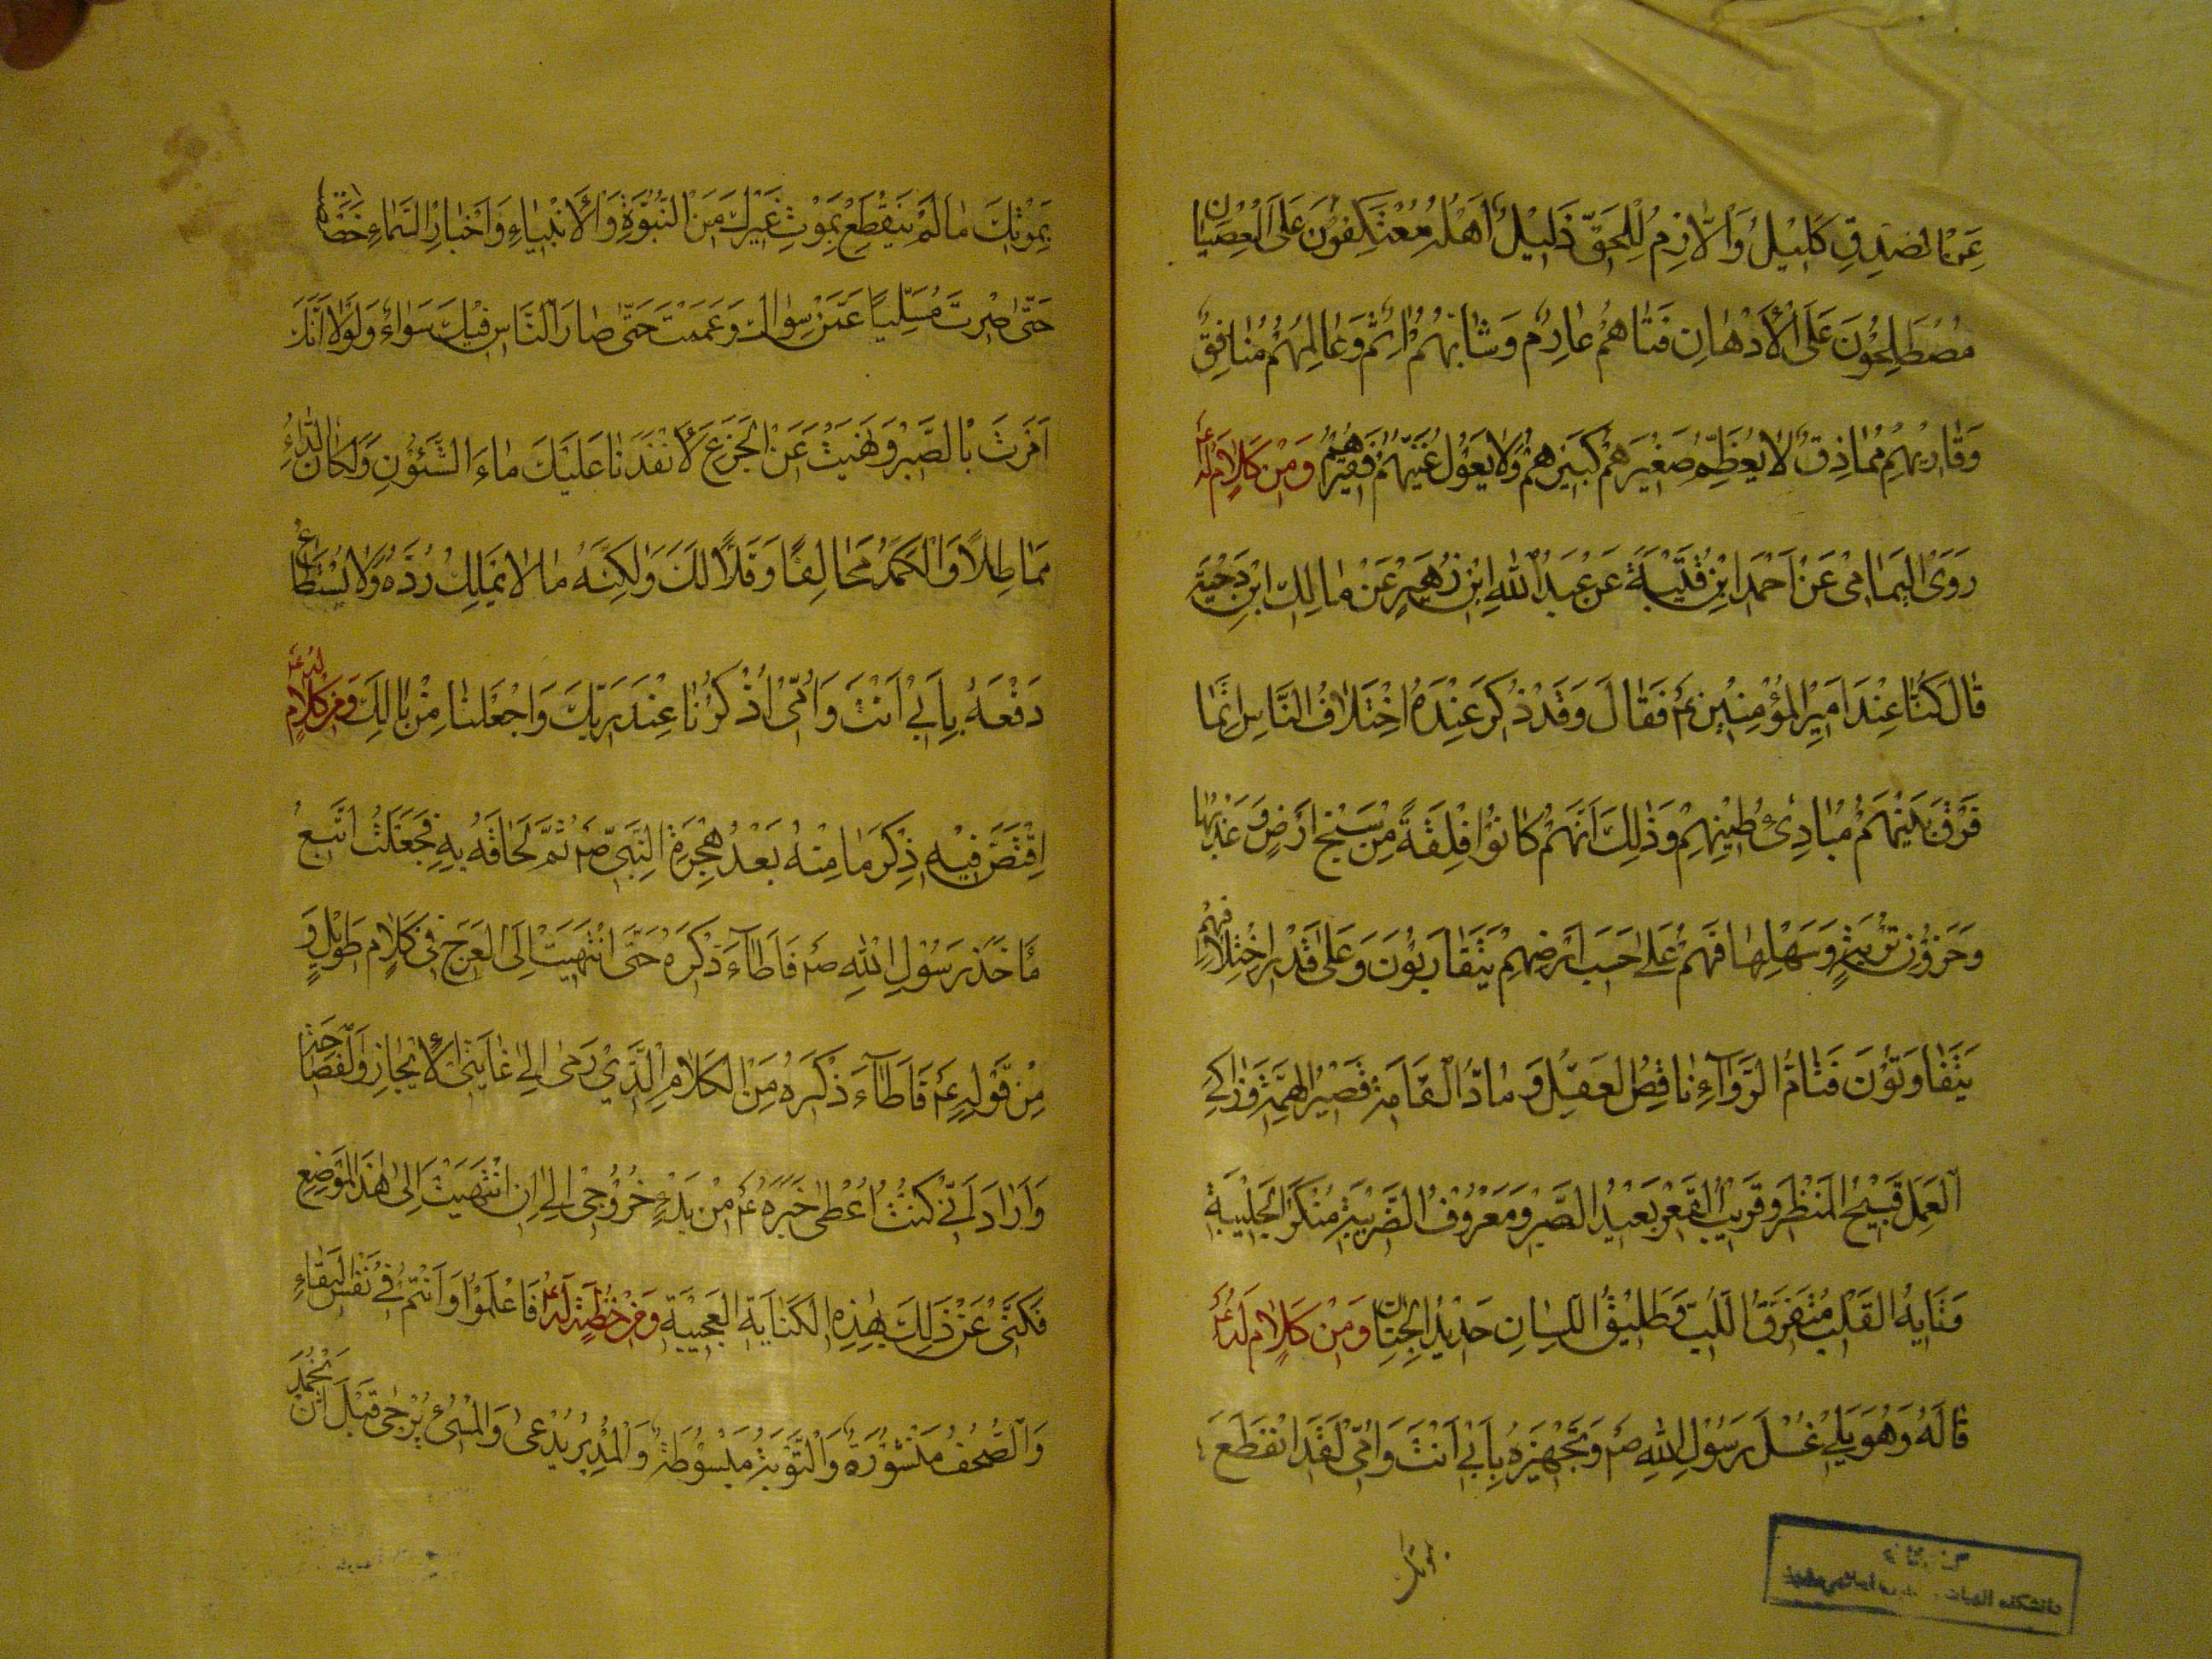 عَنِ الصِّدْقِ كَلِيلٌ وَاللَّازِمُ لِلْحَقِّ ذَلِيلٌ أَهْلُهُ مُعْتَكِفُونَ عَلَى الْعِصْيَانِ
مُصْطَلِحُونَ عَلَى الْأَدْهَانِ فَتَاهُمْ عَارِمٌ وَشَائِبُهُمْ اثِمٌ وَعَالِمُهُمْ مُنَافِقٌ
وَقَارِئُهُمْ مُمَاذِقٌ لَا يُعَظِّمُ صَغِيرُهُمْ كَبِيرَهُمْ وَلَا يَعُولُ غَنِيُّهُمْ فَقِيرَهُمْ وَمِنْ كَلَامٍ لَهُ ع
رَوَى الْيَمَامِيُ عَنْ أَحْمَدَ ابْنِ قُتَيْبَةَ عَنْ عَبْدِ اللهِ ابْنِ زُهَيْرٍ عَنْ مَالِكِ ابْنِ دِحْيَةَ
قَالَ كُنَّا عِنْدَ أَمِيرِ الْمُؤْمِنِينَ ع فَقَالَ وَقَدْ ذُكِرَ عِنْدَهُ اخْتِلَافُ النَّاسِ إِنَّمَا
فَرَّقَ بَيْنَهُمْ مَبَادِئُ طِينِهِمْ وَذٰلِكَ أَنَّهُمْ كَانُوا فِلْقَةً مِنْ سَبَخِ أَرْضٍ وَعَذْبِهَا
وَحَزْنِ تُرْبَةٍ وَسَهْلِهَا فَهُمْ عَلَى حَسَبِ أَرْضِهِمْ يَتَقَارَبُونَ وَعَلَى قَدْرِ اخْتِلَافِهِمْ
يَتَفَاوَتُونَ فَتَامُّ الرُّوَاءِ نَاقِصُ الْعَقْلِ وَمَادُّ الْقَامَةِ قَصِيرُ الْهِمَّةِ وَزَاكِي
الْعَمَلِ قَبِيحُ الْمَنْظَرِ وَقَرِيبُ الْقَعْرِ بَعِيدُ الصَّبْرِ وَمَعْرُوفُ الضَّرِيبَةِ مُنْكَرُ الْجَلِيبَةِ
وَتَايِهُ الْقَلْبِ مُتَفَرِّقُ اللُّبِّ وَطَلِيقُ اللِّسَانِ حَدِيدُ الْجِنَانِ وَمِنْ كَلَامٍ لَهُ ع
قَالَهُ وَهُوَ يَلِي غُسْلَ رَسُولِ اللهِ ص وَتَجْهِيزَهُ بِأَبِي أَنْتَ وَأُمِّي لَقَدِ انْقَطَعَ
بموتك
بِمَوْتِكَ مَا لَمْ يَنْقَطِعْ بِمَوْتِ غَيْرِكَ مِنَ النُّبُوَّةِ وَالْأَنْبِيَاءِ وَأَخْبَارِ السَّمَاءِ خَصَّصْتَ
حَتَّى صِرْتَ مُسَلِّيًا عَمَّنْ سِوَاكَ وَعَمَمْتَ حَتَّى صَارَ النَّاسُ فِيكَ سَوَاءً وَلَوْلَا أَنَّكَ
أَمَرْتَ بِالصَّبْرِ وَنَهَيْتَ عَنِ الْجَزَعِ لَأَنْفَدْنَا عَلَيْكَ مَاءَ الشُّئُونِ وَلَكَانَ الدَّاءُ
مُمَاطِلًا وَالْكَمَدُ مُحَالِفًا وَقَلَّا لَكَ وَلٰكِنَّهُ مَا لَا يُمْلَكُ رَدُّهُ وَلَا يُسْتَطَاعُ
دَفْعُهُ بِأَبِي أَنْتَ وَأُمِّي اذْكُرْنَا عِنْدَ رَبِّكَ وَاجْعَلْنَا مِنْ بَالِكَ وَمِنْ كَلَامٍ لَهُ ع
اقْتَصَّ فِيهِ ذِكْرَ مَا مِنْهُ بَعْدَ هِجْرَةِ النَّبِيِّ ص ثُمَّ لَحَاقَهُ بِهِ فَجَعَلْتُ أَتَّبِعُ
مَأْخَذَ رَسُولِ اللهِ ص فَأَطَأُ ذِكْرَهُ حَتَّى انْتَهَيْتُ إِلَى الْعَرَجِ فِي كَلَامٍ طَوِيلٍ وَ
مِنْ قَوْلِهِ ع فَأَطَأُ ذِكْرَهُ مِنَ الْكَلَامِ الَّذِي رَمَى إِلَى غَايَتَيِ الْإِيجَازِ وَالْفَصَاحَةِ
وَأَرَادَ أَنِّي كُنْتُ أُعْطَى خَبَرَهُ ع مِنْ بَدْءِ خُرُوجِي إِلَى إِنِ انْتَهَيْتُ إِلَى هٰذَا الْمَوْضِعِ
فَكَنَّى عَنْ ذٰلِكَ بِهٰذِهِ الْكِنَايَةِ الْعَجِيبَةِ وَمِنْ خُطْبَةٍ لَهُ ع فَاعْلَمُوا وَأَنْتُمْ فِي نَفَسِ الْبَقَاءِ
وَالصُّحُفُ مَنْشُورَةٌ وَالتَّوْبَةُ مَبْسُوطَةٌ وَالْمُدْبِرُ يُدْعَى وَالْمُسِيءُ يُرْجَى قَبْلَ أَنْ يَخْمَدَ